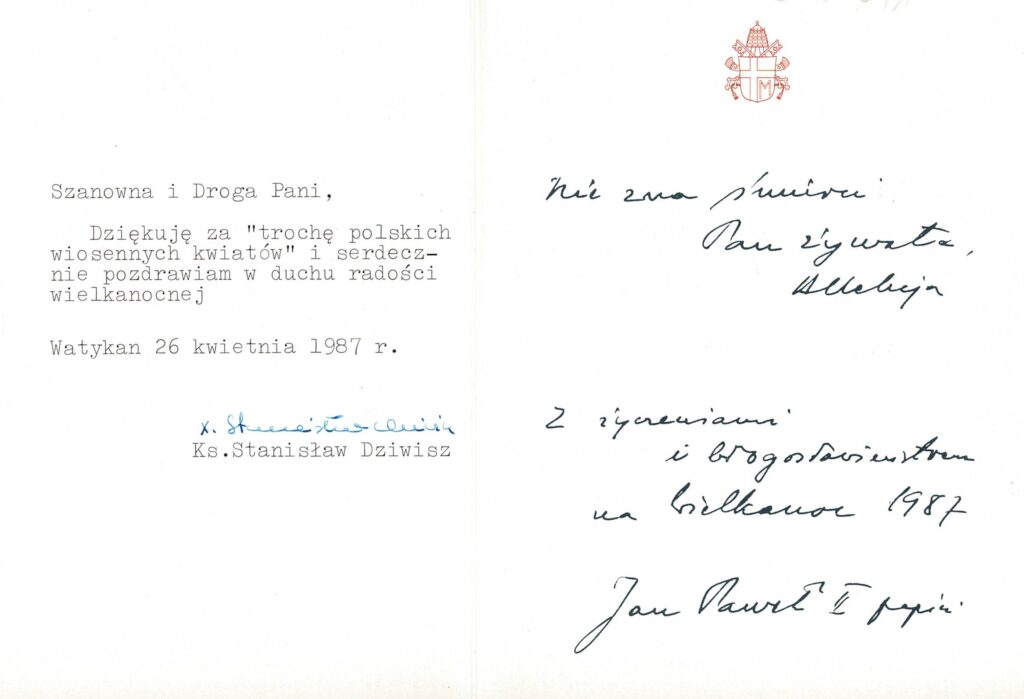 Szanowna i Droga Pani,
Dziękuję za "trochę polskich
wiosennych kwiatów" i serdecz-
nie pozdrawiam w duchu radości
wielkanocnej
Watykan 26 kwietnia 1987 r.
x. Stanisław Dziwisz
Ks.Stanisław Dziwisz
M
Nie zna śmierci
Pan żywota,
Alleluja
Z życzeniami
i błogosławieństwem
na Wielkanoc 1987
Jan Paweł II papież